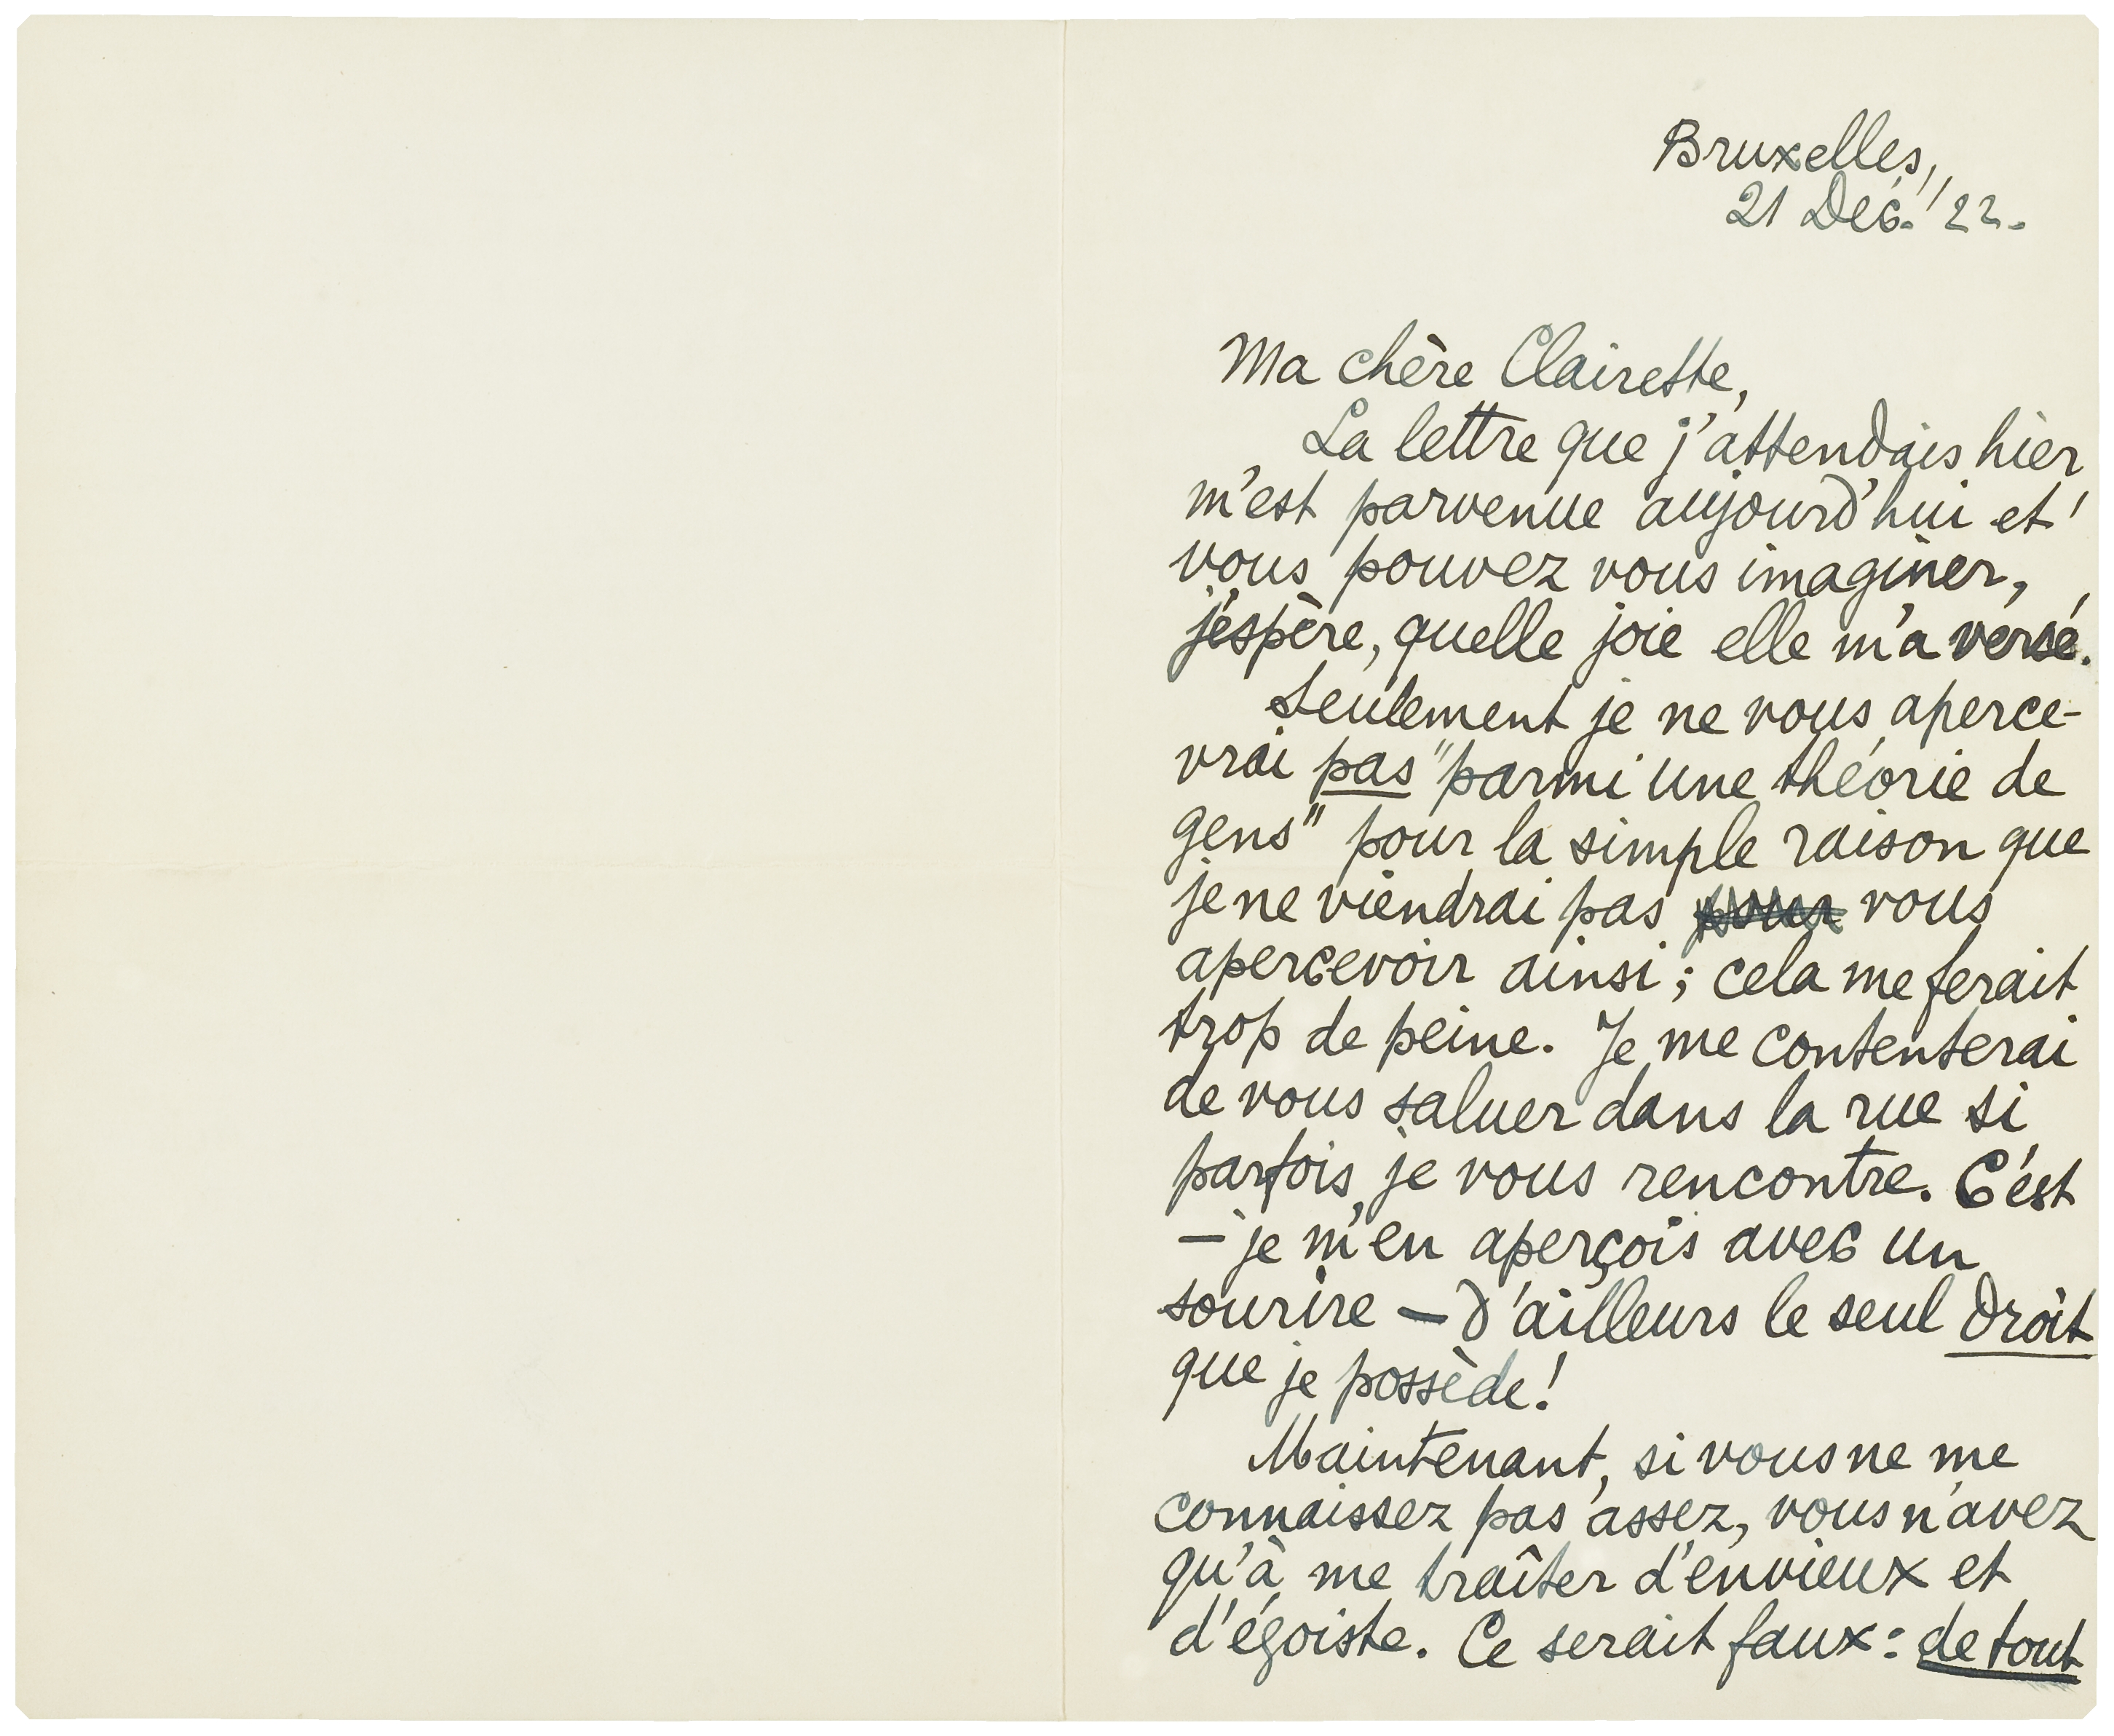 Bruxelles,
21 Déc. '22.
Ma chère Clairette,
La lettre que j'attendais hier
m'est parvenue aujourd'hui et
vous pouvez vous imaginer,
j'espère, quelle joie elle m'a versé.
Seulement je ne vous aperce-
vrai pas "parmi une théorie de
gens" pour la simple raison que
je ne viendrai pas pour vous
apercevoir ainsi; cela me ferait
trop de peine. Je me contenterai
de vous saluer dans la rue si
parfois je vous rencontre. C'est
— je m'en aperçois avec un
sourire — d'ailleurs le seul droit
que je possède!
Maintenant, si vous ne me
connaissez pas assez, vous n'avez
qu'à me traîter d'envieux et
d'égoiste. Ce serait faux: de tout